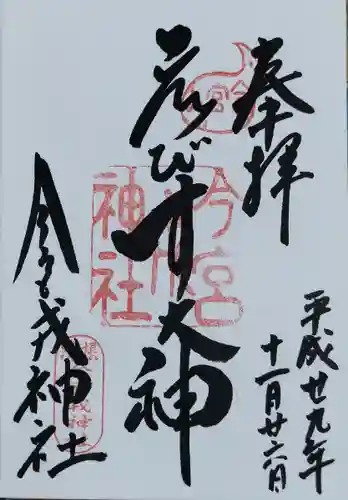 奉拝
平成廿九年
十一月廿六日
ゑびす大神
今宮戎神社
今宮
戎
神社